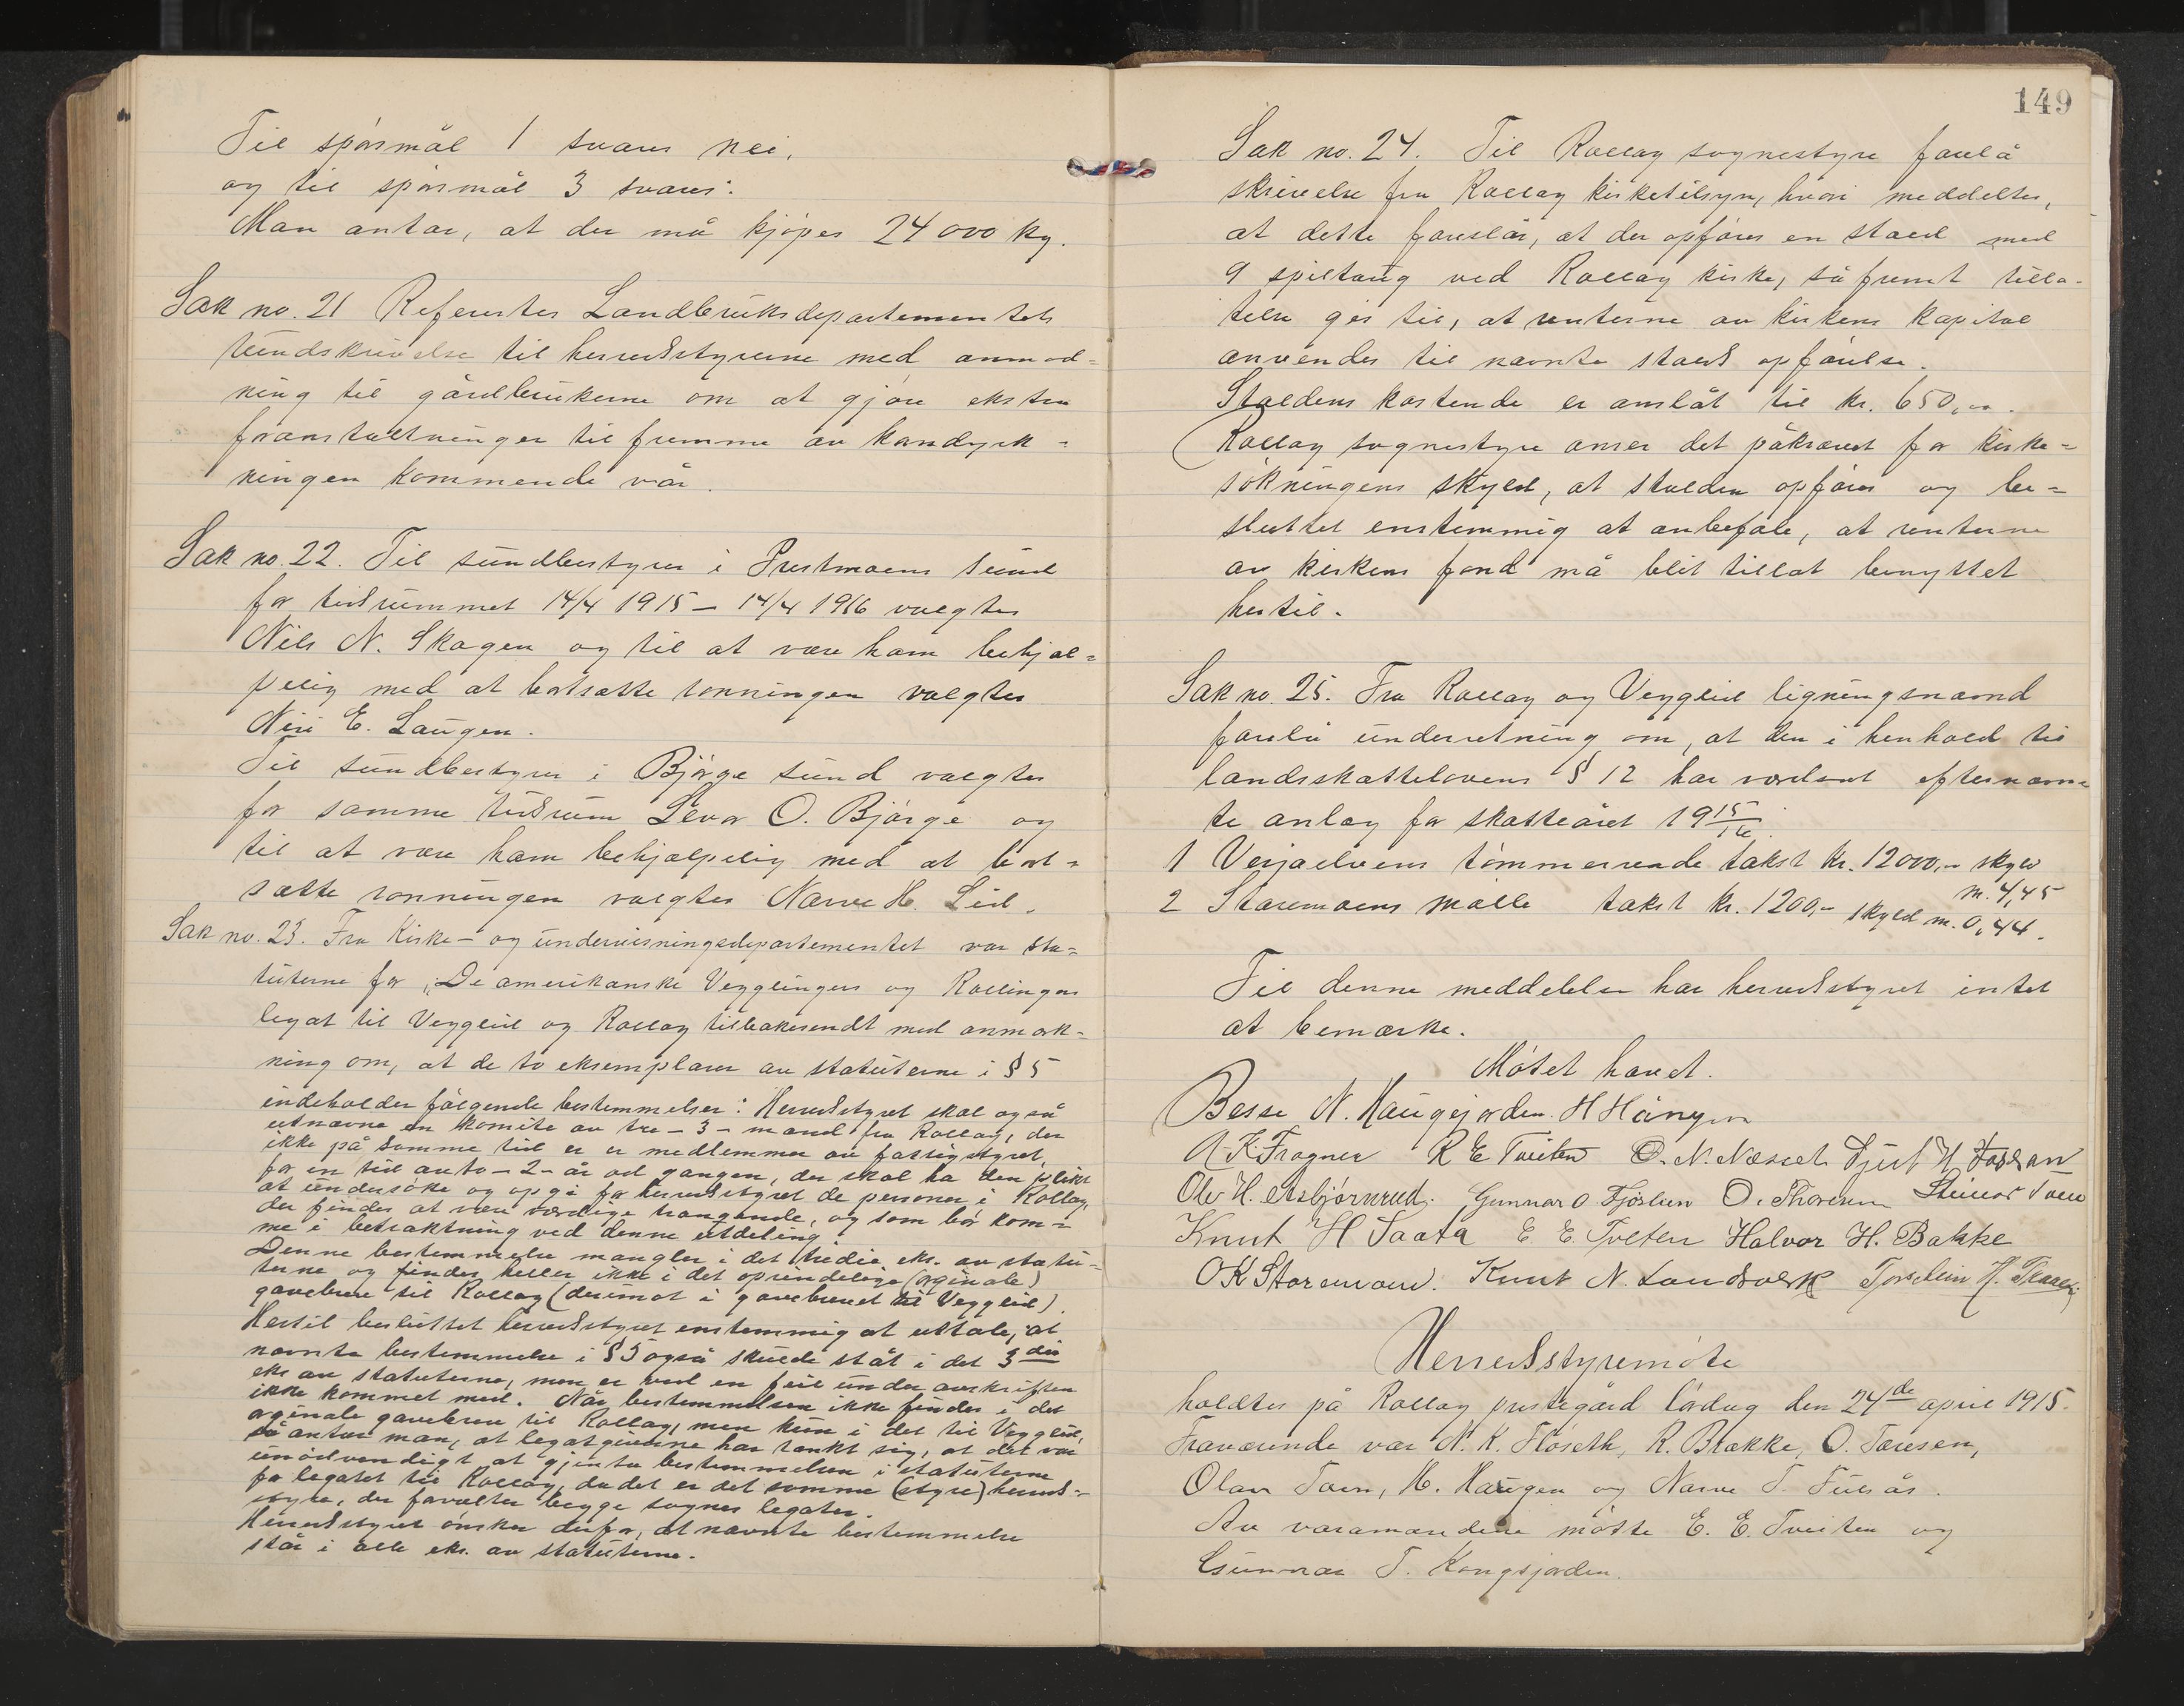 Til spörsmål 1 svares nei,
og til spörsmål 3 svares:
Man antar, at der må kjöpes 24000 kg.
Sak no. 21 Refertes Landbruksdepartementets
rundskrivelse til herredsstyrerne med anmod=
ning til gårdbrukerne om at gjöre ekstra
foranstaltninger til fremme av korndyrk=
ningen kommende vår.
Sak no. 22. Til sundbestyrer i Prestmoens sund
for tidsrummet 14/4 1915 – 14/4 1916 valgtes
Nils N. Skogen og til at være ham behjæl=
pelig med at bortsætte roningen valgtes
Niri E. Laugen.
Til sundbestyrer i Björge sund valgtes
for samme tidsrum Levor O. Björge og
til at være ham behjælpelig med at bort=
sætte roningen valgtes Narve H. Lid.
Sak no. 23. Fra Kirke- og undervisningsdepartementet var sta=
tuterne for „De amerikanske Vegglingers og Rollingers
legat til Vegglid og Rollag tilbakesendt med anmerk=
ning om, at de to eksemplarer av statuterne i § 5
indeholder fölgende bestemmelser: Herredsstyret skal også
utnævne en komite av tre – 3 – mænd fra Rollag, der
ikke på samme tid er medlemmer av fattigstyret,
for en tid av to – 2 – år ad gangen, der skal ha den plikt
at undersöke og opgi for herredsstyret de personer i Rollag,
der findes at være værdige trængende, og som bör kom=
me i betraktning ved denne utdeling.
Denne bestemmelse mangler i det tredie eks. av statu=
terne og findes heller ikke i det oprindelige (orginale)
gavebrev til Rollag (derimot i gavebrevet til Vegglid).
Hertil besluttet herredsstyret enstemmig at uttale, at
nævnte bestemmelse i § 5 også skulde ståt i det 3die
eks av statuterne, men er ved en feil under avskriften
ikke kommet med. Når bestemmelsen ikke findes i det
orginale gavebrev til Rollag, men kun i det til Vegglid,
så antar man, at legatgiverne har tænkt sig, at det var
unödvendigt at gjenta bestemmelsen i statuterne
for legatet til Rollag, da det er det samme (styre) herreds=
styre, der forvalter begge sognes legater.
Herredsstyret önsker derfor, at nævnte bestemmelse
står i alle eks. av statuterne.
149
Sak no. 24. Til Rollag sognestyre forelå
skrivelse fra Rollag kirketilsyn, hvori meddeltes,
at dette foreslår, at der opföres en stald med
9 spiltaug ved Rollag kirke, såfremt tilla=
telse gis til, at renterne av kirkens kapital
anvendes til nævnte stalds opförelse.
Staldens kostende er anslåt til kr. 650,00.
Rollag sognestyre anser det påkrævet for kirke=
sökningens skyld, at stalden opföres og be=
sluttet enstemmig at anbefale, at renterne
av kirkens fond må blit tillat benyttet
hertil.
Sak no. 25. Fra Rollag og Vegglid ligningsnævnd
forelå underretning om, at den i henhold til
landsskattelovens § 12 har værdsat efternævn
te anlæg for skatteåret 1915/16.
1 Verjaelvens tömmerrende takst kr. 12000,– skyld
m. 4,45
2 Staremoens mölle takst kr. 1200,– skyld m. 0,44.
Til denne meddelelse har herredsstyret intet
at bemærke.
Mötet hævet.
Besse N. Haugejorden. H Hånger
A. K. Fragner R E Tveiten O. N. Næseth Gjert H. Foslan
Ole H. Asbjörnrud. Gunnar O Fjöslien O. Thoresen Steinar Toen
Knut H Saata E E Tveten Halvor H. Bakke
O K Staremoen. Knut N. Landsverk Torstein H.
Herredsstyremöte
holdtes på Rollag prestegård lördag den 24de april 1915.
Fraværende var N. K. Flöseth, R. Brække, O. Toresen,
Olav Toen, H. Haugen og Narve T. Fulsås.
Av varamændene mötte E. E. Tveiten og
Gunnar T. Kongsjorden.